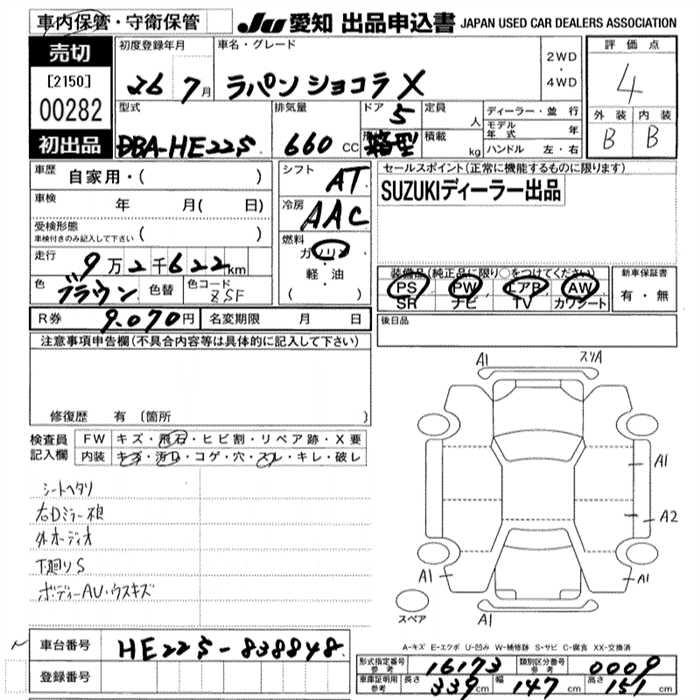 車内保管・守衛保管
JU 愛知 出品申込書 JAPAN USED CAR DEALERS ASSOCIATION
売切
[2150]
00282
初出品
初度登録年月
26 7月
車名・グレード
ラパン ショコラ X
2WD
・
4WD
評価点
4
外装 内装
B B
型式
DBA-HE22S
排気量
660 CC
ドア
5
箱型
定員
人
積載
kg
ディーラー・並 行
モデル年式 年
ハンドル 左・右
車歴
自家用・( )
車検
年 月( 日)
受検形態
車検付きのみ記入して下さい ( )
走行
9万2千622km
色
ブラウン
色替
色コード
ZSF
シフト
AT
冷房
AAC
燃料
ガソリン
軽・油
( )
セールスポイント(正常に機能するものに限ります)
SUZUKIディーラー出品
装備品(純正品に限り○をつけてください)
PS PW エアB AW
SR ナビ TV カワシート
新車保証書
有・無
R券 9.070円 名変期限 月 日
後日品
注意事項申告欄(不具合内容等は具体的に記入して下さい)
修復歴 有 (箇所 )
検査員
記入欄
FW キズ・飛石・ヒビ割・リペア跡・X要
内装 キズ・汚れ・コゲ・穴・スレ・キレ・破レ
シートヘタリ
右Dミラー根
外オーディオ
下廻りS
ボディーAU・ウスキズ
A1
スリA
A1
A2
A1
A1
A1
スペア
A-キズ E-エクボ U-凹み W-補修跡 S-サビ C-腐食 XX-交換済
車台番号 HE22S-838848
登録番号
形式指定番号
参考
16173
類別区分番号
参考
0009
車庫証明用
参考
長さ 339cm 幅 147cm 高さ 151cm